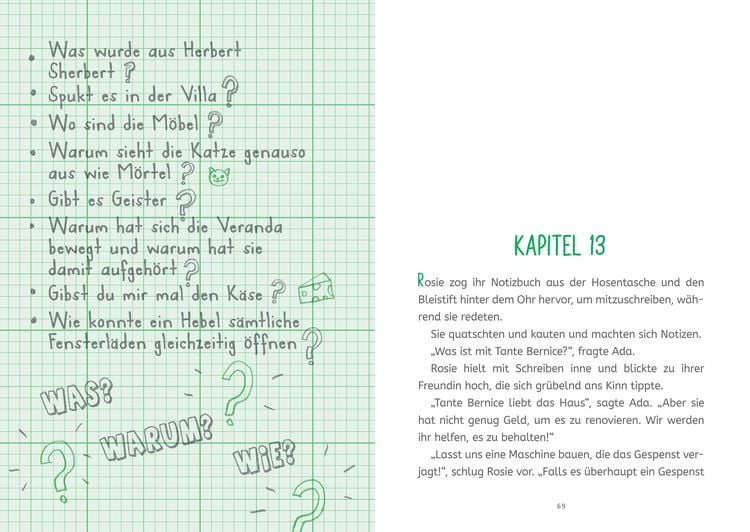 • Was wurde aus Herbert
Sherbert?
• Spukt es in der Villa?
• Wo sind die Möbel?
• Warum sieht die Katze genauso
aus wie Mörtel?
• Gibt es Geister?
• Warum hat sich die Veranda
bewegt und warum hat sie
damit aufgehört?
• Gibst du mir mal den Käse?
• Wie konnte ein Hebel sämtliche
Fensterläden gleichzeitig öffnen?
WAS?
WARUM?
WIE?
KAPITEL 13
Rosie zog ihr Notizbuch aus der Hosentasche und den
Bleistift hinter dem Ohr hervor, um mitzuschreiben, wäh-
rend sie redeten.
Sie quatschten und kauten und machten sich Notizen.
„Was ist mit Tante Bernice?“, fragte Ada.
Rosie hielt mit Schreiben inne und blickte zu ihrer
Freundin hoch, die sich grübelnd ans Kinn tippte.
„Tante Bernice liebt das Haus“, sagte Ada. „Aber sie
hat nicht genug Geld, um es zu renovieren. Wir werden
ihr helfen, es zu behalten!“
„Lasst uns eine Maschine bauen, die das Gespenst ver-
jagt!“, schlug Rosie vor. „Falls es überhaupt ein Gespenst
69